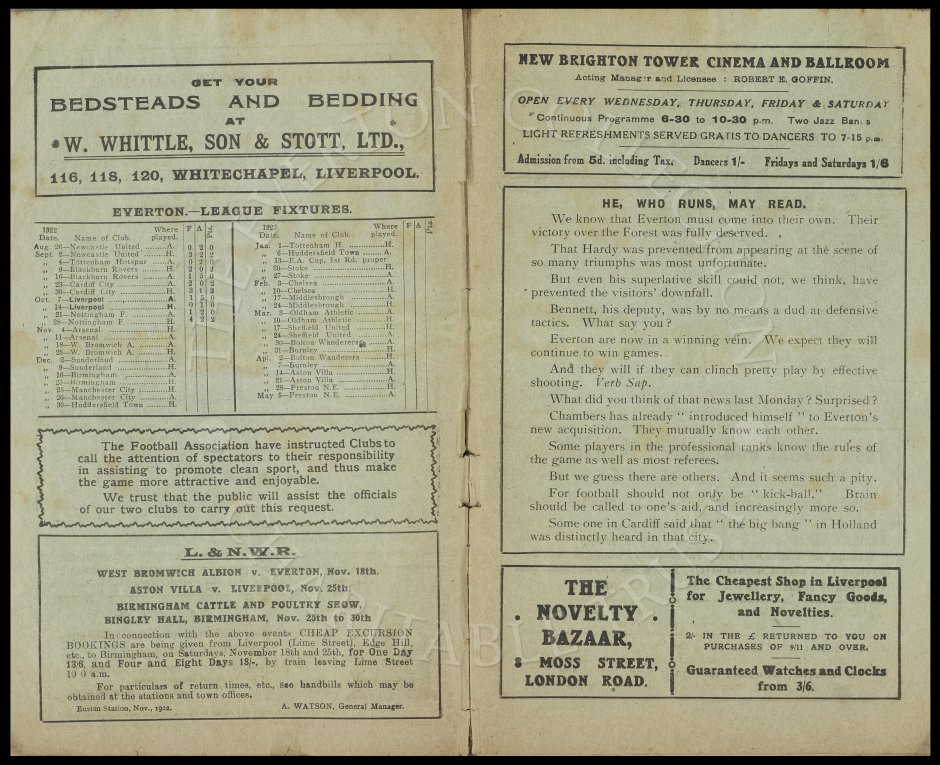 GET YOUR
BEDSTEADS AND BEDDING
AT
W. WHITTLE, SON & STOTT, LTD.,
116, 118, 120, WHITECHAPEL, LIVERPOOL.
EVERTON.—LEAGUE FIXTURES.
1922 Date. Name of Club. Where played. F A Pts.
Aug. 26—Newcastle United A. 0 2 0
Sept. 2—Newcastle United H. 3 2 2
„ 4—Tottenham Hotspur A. 0 2 0
„ 9—Blackburn Rovers H. 2 0 2
„ 16—Blackburn Rovers A. 1 5 0
„ 23—Cardiff City A. 2 0 2
„ 30—Cardiff City H. 3 1 2
Oct. 7—Liverpool A. 1 5 0
„ 14—Liverpool H. 0 1 0
„ 21—Nottingham F. A. 1 2 0
„ 28—Nottingham F. H. 4 2 2
Nov. 4—Arsenal H.
„ 11—Arsenal A.
„ 18—W. Bromwich A. A.
„ 25—W. Bromwich A. H.
Dec. 2—Sunderland A.
„ 9—Sunderland H.
„ 16—Birmingham A.
„ 23—Birmingham H.
„ 25—Manchester City H.
„ 26—Manchester City A.
„ 30—Huddersfield Town H.
1923 Date. Name of Club. Where played. F A Pts
Jan. 1—Tottenham H. H.
„ 6—Huddersfield Town A.
„ 13—F.A. Cup, 1st Rd. proper
„ 20—Stoke H.
„ 27—Stoke A.
Feb. 3—Chelsea A.
„ 10—Chelsea H.
„ 17—Middlesbrough A.
„ 24—Middlesbrough H.
Mar. 3—Oldham Athletic A.
„ 10—Oldham Athletic H.
„ 17—Sheffield United H.
„ 24—Sheffield United A.
„ 30—Bolton Wanderers A.
„ 31—Burnley H.
Apl. 2—Bolton Wanderers H.
„ 7—Burnley A.
„ 14—Aston Villa H.
„ 21—Aston Villa A.
„ 28—Preston N.E. H.
May 5—Preston N.E. A.
The Football Association have instructed Clubs to
call the attention of spectators to their responsibility
in assisting to promote clean sport, and thus make
the game more attractive and enjoyable.
We trust that the public will assist the officials
of our two clubs to carry out this request.
L. & N.W.R.
WEST BROMWICH ALBION v. EVERTON, Nov. 18th.
ASTON VILLA v. LIVERPOOL, Nov. 25th.
BIRMINGHAM CATTLE AND POULTRY SHOW,
BINGLEY HALL, BIRMINGHAM, Nov. 25th to 30th
In connection with the above events CHEAP EXCURSION
BOOKINGS are being given from Liverpool (Lime Street), Edge Hill,
etc., to Birmingham, on Saturdays, November 18th and 25th, for One Day
13/6, and Four and Eight Days 18/-, by train leaving Lime Street
10 0 a.m.
For particulars of return times, etc., see handbills which may be
obtained at the stations and town offices.
Euston Station, Nov., 1922. A. WATSON, General Manager.
NEW BRIGHTON TOWER CINEMA AND BALLROOM
Acting Manager and Licensee : ROBERT E. GOFFIN.
OPEN EVERY WEDNESDAY, THURSDAY, FRIDAY & SATURDAY
Continuous Programme 6-30 to 10-30 p.m. Two Jazz Ban s
LIGHT REFRESHMENTS SERVED GRATIS TO DANCERS TO 7-15 p.m.
Admission from 5d. including Tax. Dancers 1/- Fridays and Saturdays 1/6
HE, WHO RUNS, MAY READ.
We know that Everton must come into their own. Their
victory over the Forest was fully deserved.
That Hardy was prevented from appearing at the scene of
so many triumphs was most unfortunate.
But even his superlative skill could not, we think, have
prevented the visitors' downfall.
Bennett, his deputy, was by no means a dud at defensive
tactics. What say you?
Everton are now in a winning vein. We expect they will
continue to win games.
And they will if they can clinch pretty play by effective
shooting. Verb Sap.
What did you think of that news last Monday? Surprised?
Chambers has already “ introduced himself ” to Everton's
new acquisition. They mutually know each other.
Some players in the professional ranks know the rules of
the game as well as most referees.
But we guess there are others. And it seems such a pity.
For football should not only be “ kick-ball.” Brain
should be called to one's aid, and increasingly more so.
Some one in Cardiff said that “ the big bang ” in Holland
was distinctly heard in that city.
THE
NOVELTY
BAZAAR,
8 MOSS STREET,
LONDON ROAD.
The Cheapest Shop in Liverpool
for Jewellery, Fancy Goods,
and Novelties.
2/- IN THE £ RETURNED TO YOU ON
PURCHASES OF 9/11 AND OVER.
Guaranteed Watches and Clocks
from 3/6.